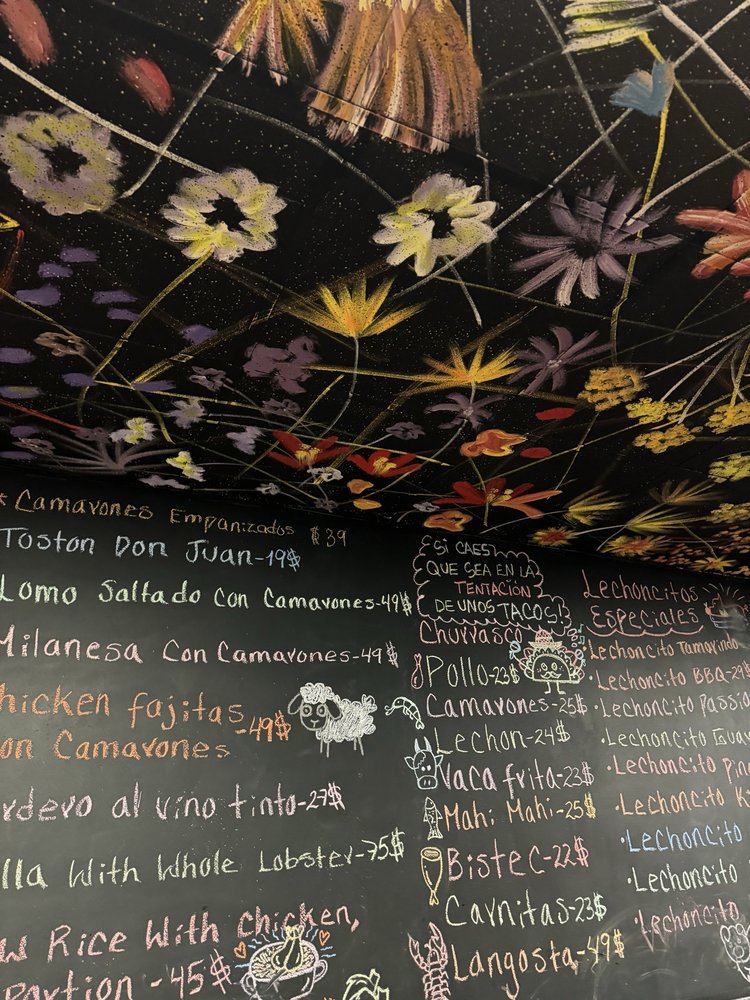 Camarones Empanizados $39
Toston Don Juan-19$
Lomo Saltado con Camarones-49$
Milanesa Con Camarones-49$
hicken fajitas
on Camarones -49$
rdero al vino tinto-27$
lla With Whole Lobster-75$
w Rice With chicken,
Partion -45$
SI CAES
QUE SEA EN LA
TENTACIÓN
DE UNOS TACOS!
Churrasco
Pollo-23$
Camarones-25$
Lechon-24$
Vaca frita-23$
Mahi Mahi-25$
Bistec-22$
Carnitas-23$
Langosta-49$
Lechoncitos
Especiales
Lechoncito Tamarindo
Lechoncito BBQ-29
Lechoncito Passio
Lechoncito Guav
Lechoncito Pin
Lechoncito K
Lechoncito
Lechoncito
Lechoncito